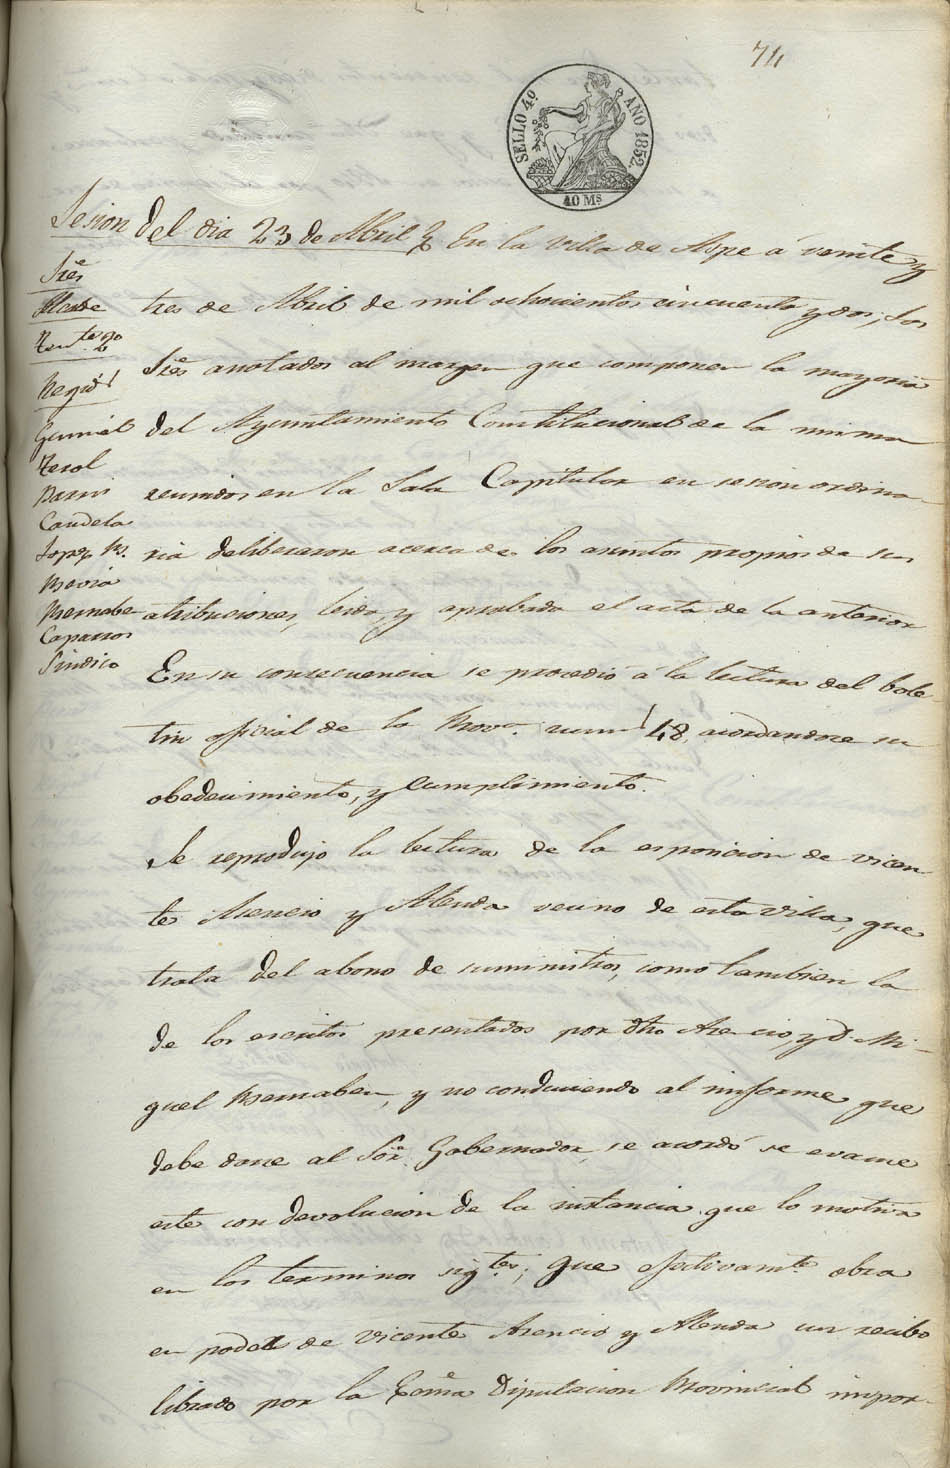 74
SELLO 4º AÑO 1852.
40 Ms
Sesion del dia 23 de Abril En la Villa de Aspe á veinte y
Sres
Alcalde
Tente 2º
Regidl
Gumiel
Terol
Pavin
Candela
Lopez
Mexia
Bernabe
Caparros
Sindico
tres de Abril de mil ochocientos cincuenta y dos; los
Sres anotados al margen que componen la mayoria
del Ayuntamiento Constitucional de la misma
reunidos en la Sala Capitular en sesion ordina-
ria deliberaron acerca de los asuntos propios de sus
atribuciones, leida, y aprobada el acta de la anterior
En su consecuencia se procedió á la lectura del bole-
tin oficial de la Prova. numl 48, acordandose su
obedecimiento, y cumplimiento.
Se reprodujo la lectura de la esposicion de Vicen-
te Asencio y Alenda vecino de esta Villa, que
trata del abono de suministros, como tambien la
de los escritos presentados por dho Asencio, y D. Mi-
guel Bernabeu, y no conduciendo al informe que
debe darse al Sor. Gobernador, se acordó se evacue
este con devolucion de la instancia que lo motiva
en los terminos sigtes; Que efectivamte. obra
en poder de Vicente Asencio y Alenda un recibo
librado por la Ecma Diputacion Provincial impor-